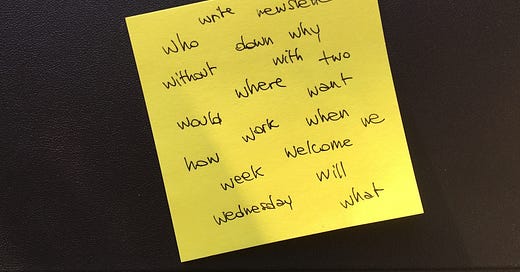 write newslette
who down why
without with two
where want
would
work when we
how welcome
week will
wednesday what